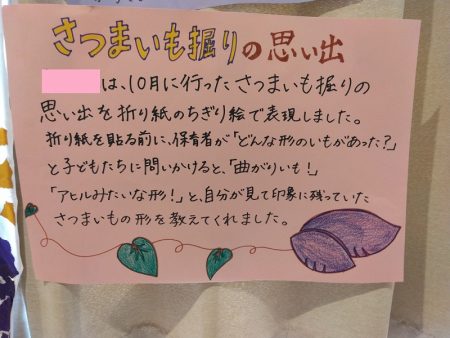 さつまいも掘りの思い出
は、10月に行ったさつまいも掘りの
思い出を折り紙のちぎり絵で表現しました。
折り紙を貼る前に、保育者が「どんな形のいもがあった?」
と子どもたちに問いかけると、「曲がりいも!」
「アヒルみたいな形!」と、自分が見て印象に残っていた
さつまいもの形を教えてくれました。